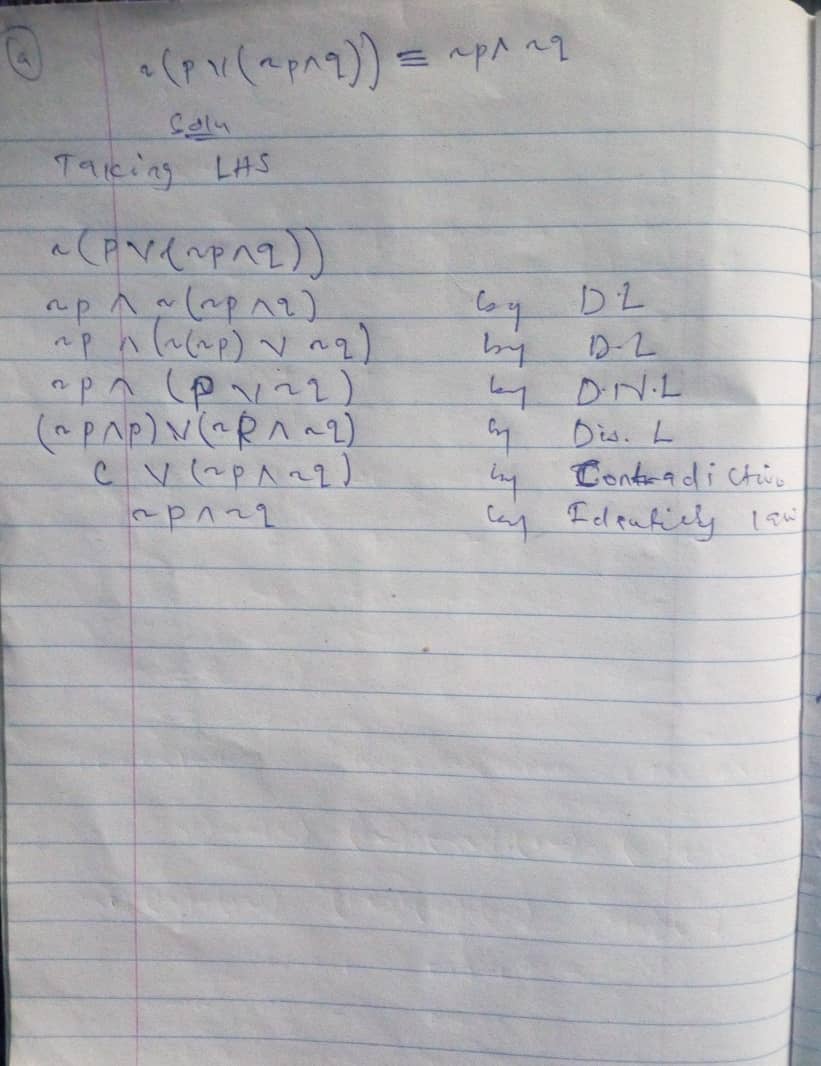 a
~(p∨(~p∧q)) ≡ ~p∧~q
Soln
Taking LHS
~(p∨(~p∧q))
~p ∧ ~(~p∧q) by D.L
~p ∧ (~(~p) ∨ ~q) by D.L
~p ∧ (p ∨ ~q) by D.N.L
(~p∧p) ∨ (~p ∧ ~q) by Dis. L
C ∨ (~p ∧ ~q) by Contradictio
~p∧~q by Identity law